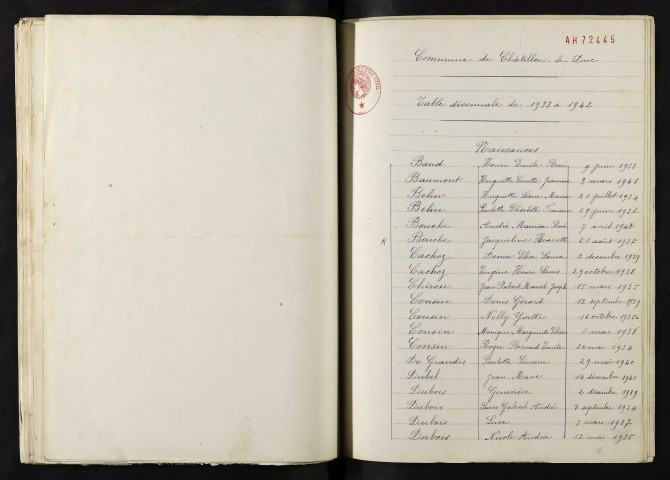 AH 72445
Commune de Châtillon-le-Duc
Table décennale de 1933 à 1942
Naissances
Baud Henri Emile René 9 juin 1933
Baumont Huguette Lucette Jeannine 3 mars 1941
Belin Huguette Marie 21 juillet 1934
Belin Paulette Charlotte 29 juin 1936
Bouche André Maurice René 7 avril 1940
R Bouche Jacqueline Henriette 20 août 1935
Cachoz Denise Elise 2 décembre 1939
Cachoz Eugène Henri Louis 29 octobre 1938
Chiron Jean Robert Marcel Joseph 15 mars 1935
Cousin Denis Gérard 12 septembre 1939
Cousin Nelly Yvette 16 octobre
Cousin Monique Marguerite Elise 6 mai 1938
Cousin Roger Bernard Emile 20 mai 1934
De Grandis Paulette Simone 29 mai 1940
Jean Marie 14 décembre 1941
Dubois Geneviève 2 décembre 1939
Dubois Louis Gabriel André 8 septembre 1934
Dubois Luce 3 mars 1937
Dubois Nicole Andrée 12 mai 1935